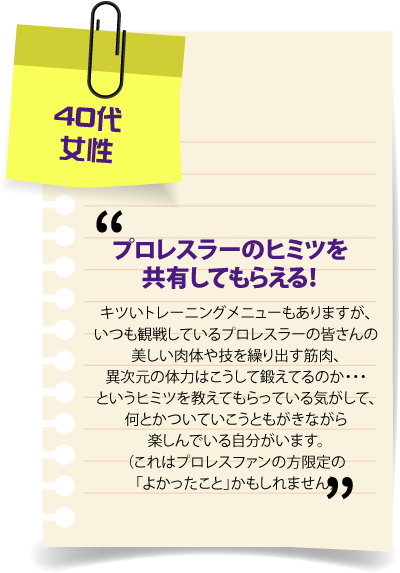 40代
女性
“
プロレスラーのヒミツを
共有してもらえる！
キツいトレーニングメニューもありますが、
いつも観戦しているプロレスラーの皆さんの
美しい肉体や技を繰り出す筋肉、
異次元の体力はこうして鍛えてるのか・・・
というヒミツを教えてもらっている気がして、
何とかついていこうともがきながら
楽しんでいる自分がいます。
（これはプロレスファンの方限定の
「よかったこと」かもしれません
”